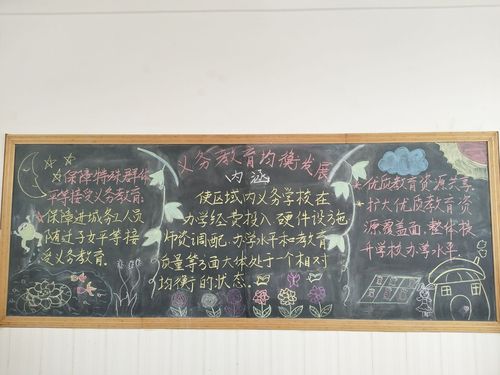 义务教育均衡发展
内涵
保障特殊群体
平等接受义务教育:
保障进城务工人员
随迁子女平等接
受义务教育.
使区域内义务学校在
办学经费投入 硬件设施
师资调配.办学水平和教育
质量等方面大体处于一个相对
均衡的状态.
优质教育资源共享.
扩大优质教育资
源覆盖面.整体提
升学校办学水平.